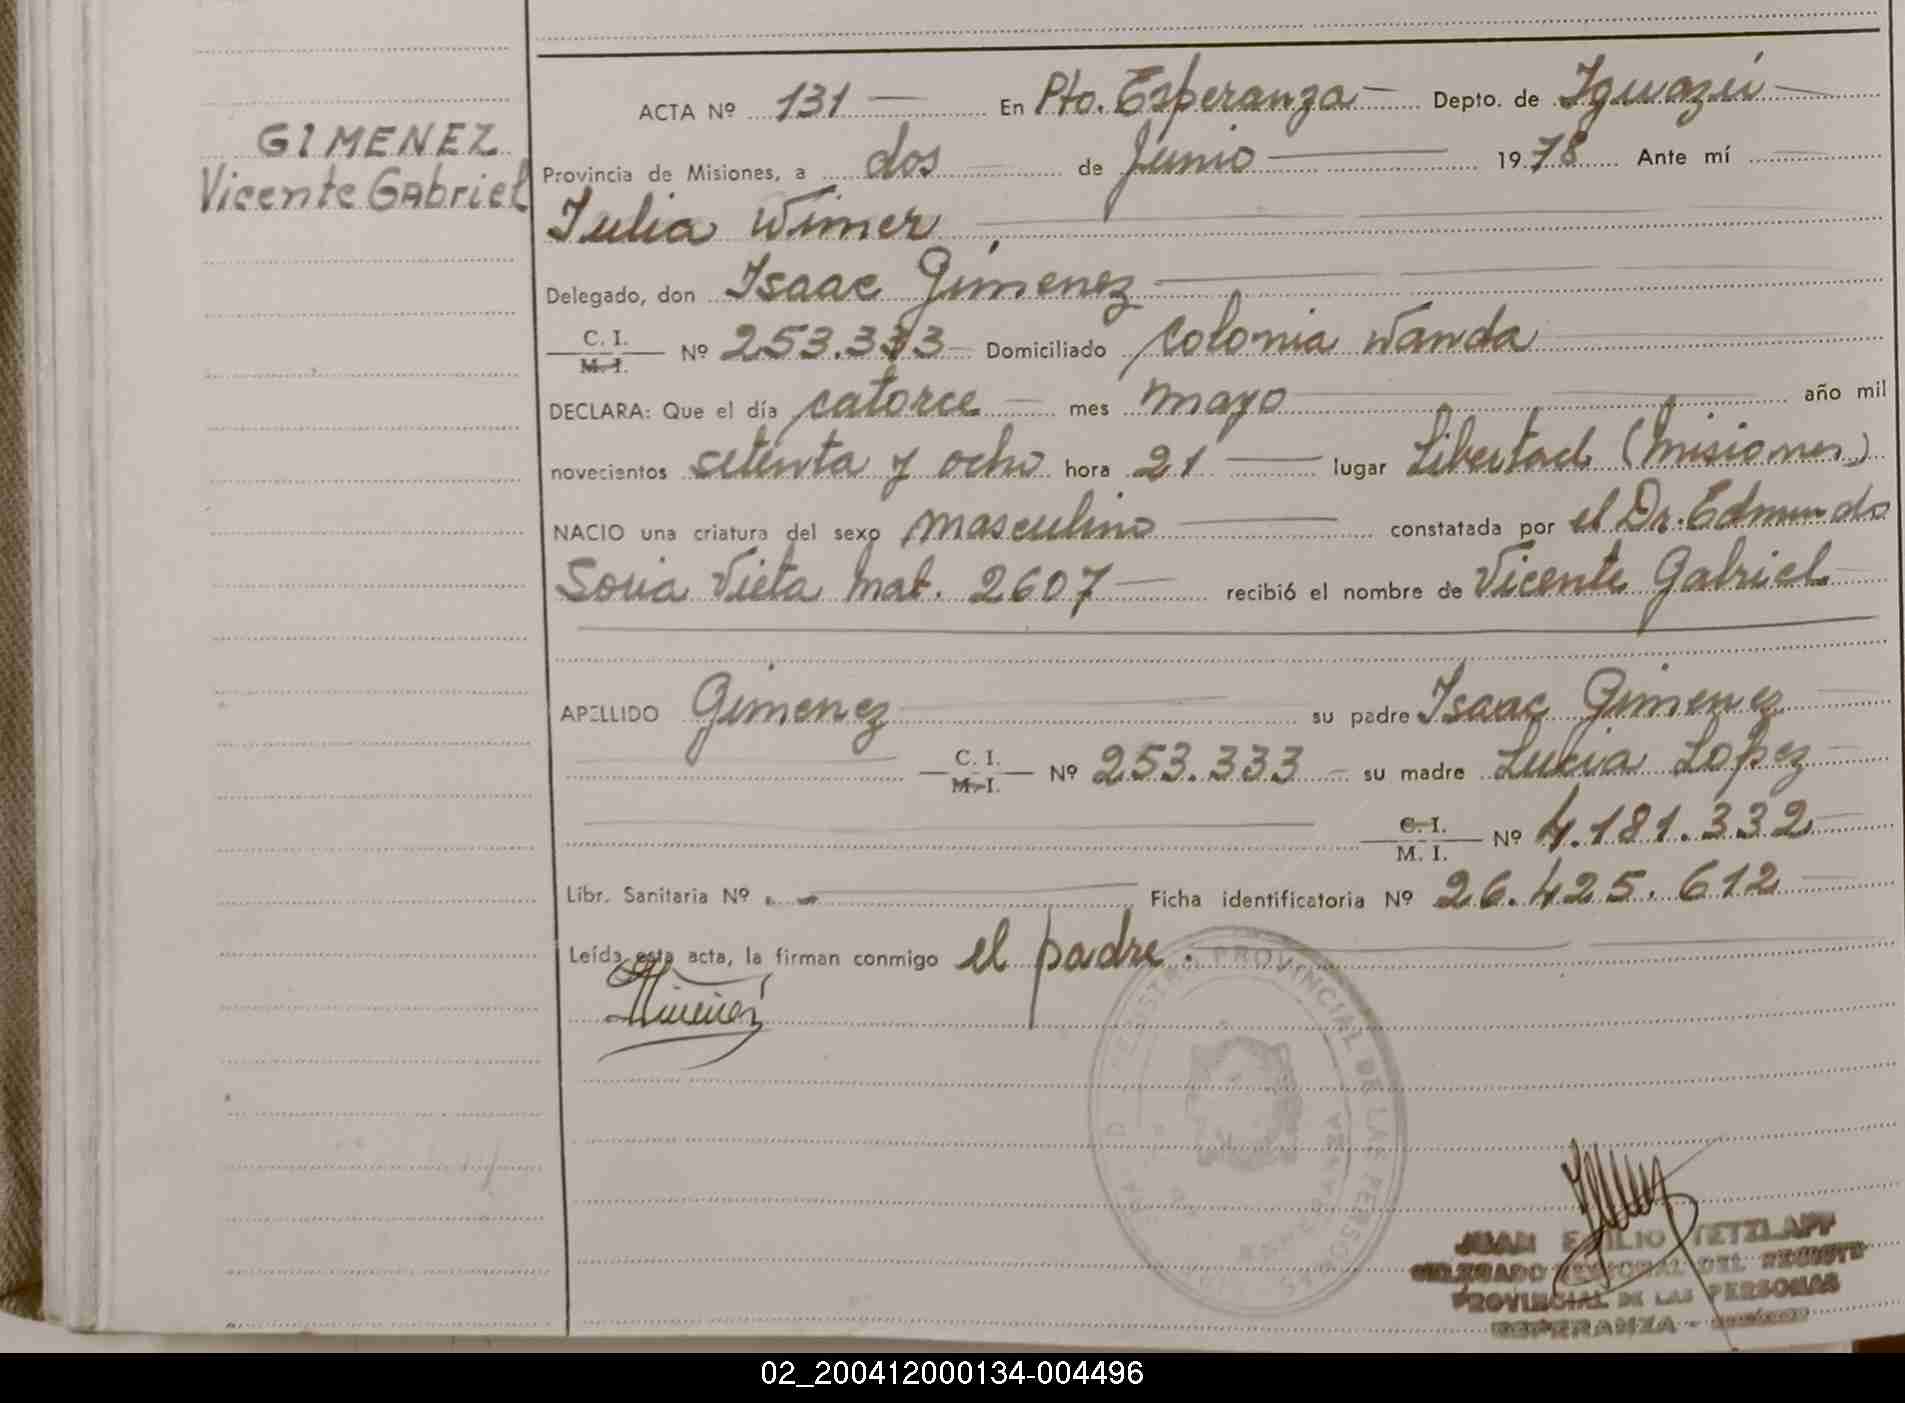 GIMENEZ
Vicente Gabriel
ACTA Nº 131 En Pto. Esperanza Depto. de Iguazú
Provincia de Misiones, a dos de Junio 1978 Ante mí
Julia Wimer
Delegado, don Isaac Gimenez
C. I.
M. I. Nº 253.333 Domiciliado Colonia Wanda
DECLARA: Que el día catorce mes mayo año mil
novecientos setenta y ocho hora 21 lugar Libertad (Misiones)
NACIO una criatura del sexo masculino constatada por el Dr. Edmundo
Soria Vieta Mat. 2607 recibió el nombre de Vicente Gabriel
APELLIDO Gimenez su padre Isaac Gimenez
C. I.
M. I. Nº 253.333 su madre Lucia Lopez
C. I.
M. I. Nº 4.181.332
Libr. Sanitaria Nº Ficha identificatoria Nº 26.425.612
Leída esta acta, la firman conmigo el padre.
Gimenez
PROVINCIAL DE LAS PERSONAS
ESPERANZA
JUAN EMILIO TETZLAFF
DELEGADO REGIONAL DEL REGISTRO
PROVINCIAL DE LAS PERSONAS
ESPERANZA -
02_200412000134-004496